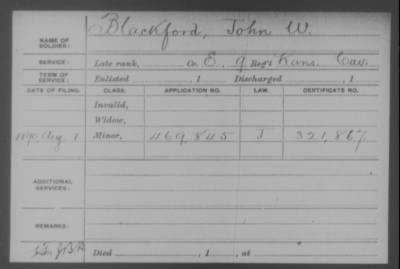 NAME OF SOLDIER: Blackford, John W.
SERVICE: Late rank, Co. E, 9 Reg't Kans. Cav.
TERM OF SERVICE: Enlisted , 1 Discharged , 1
DATE OF FILING. CLASS. APPLICATION NO. LAW. CERTIFICATE NO.
Invalid,
Widow,
1890, Aug 1 Minor, 469,845 J 321,867
ADDITIONAL SERVICES:
REMARKS:
Died , 1 , at